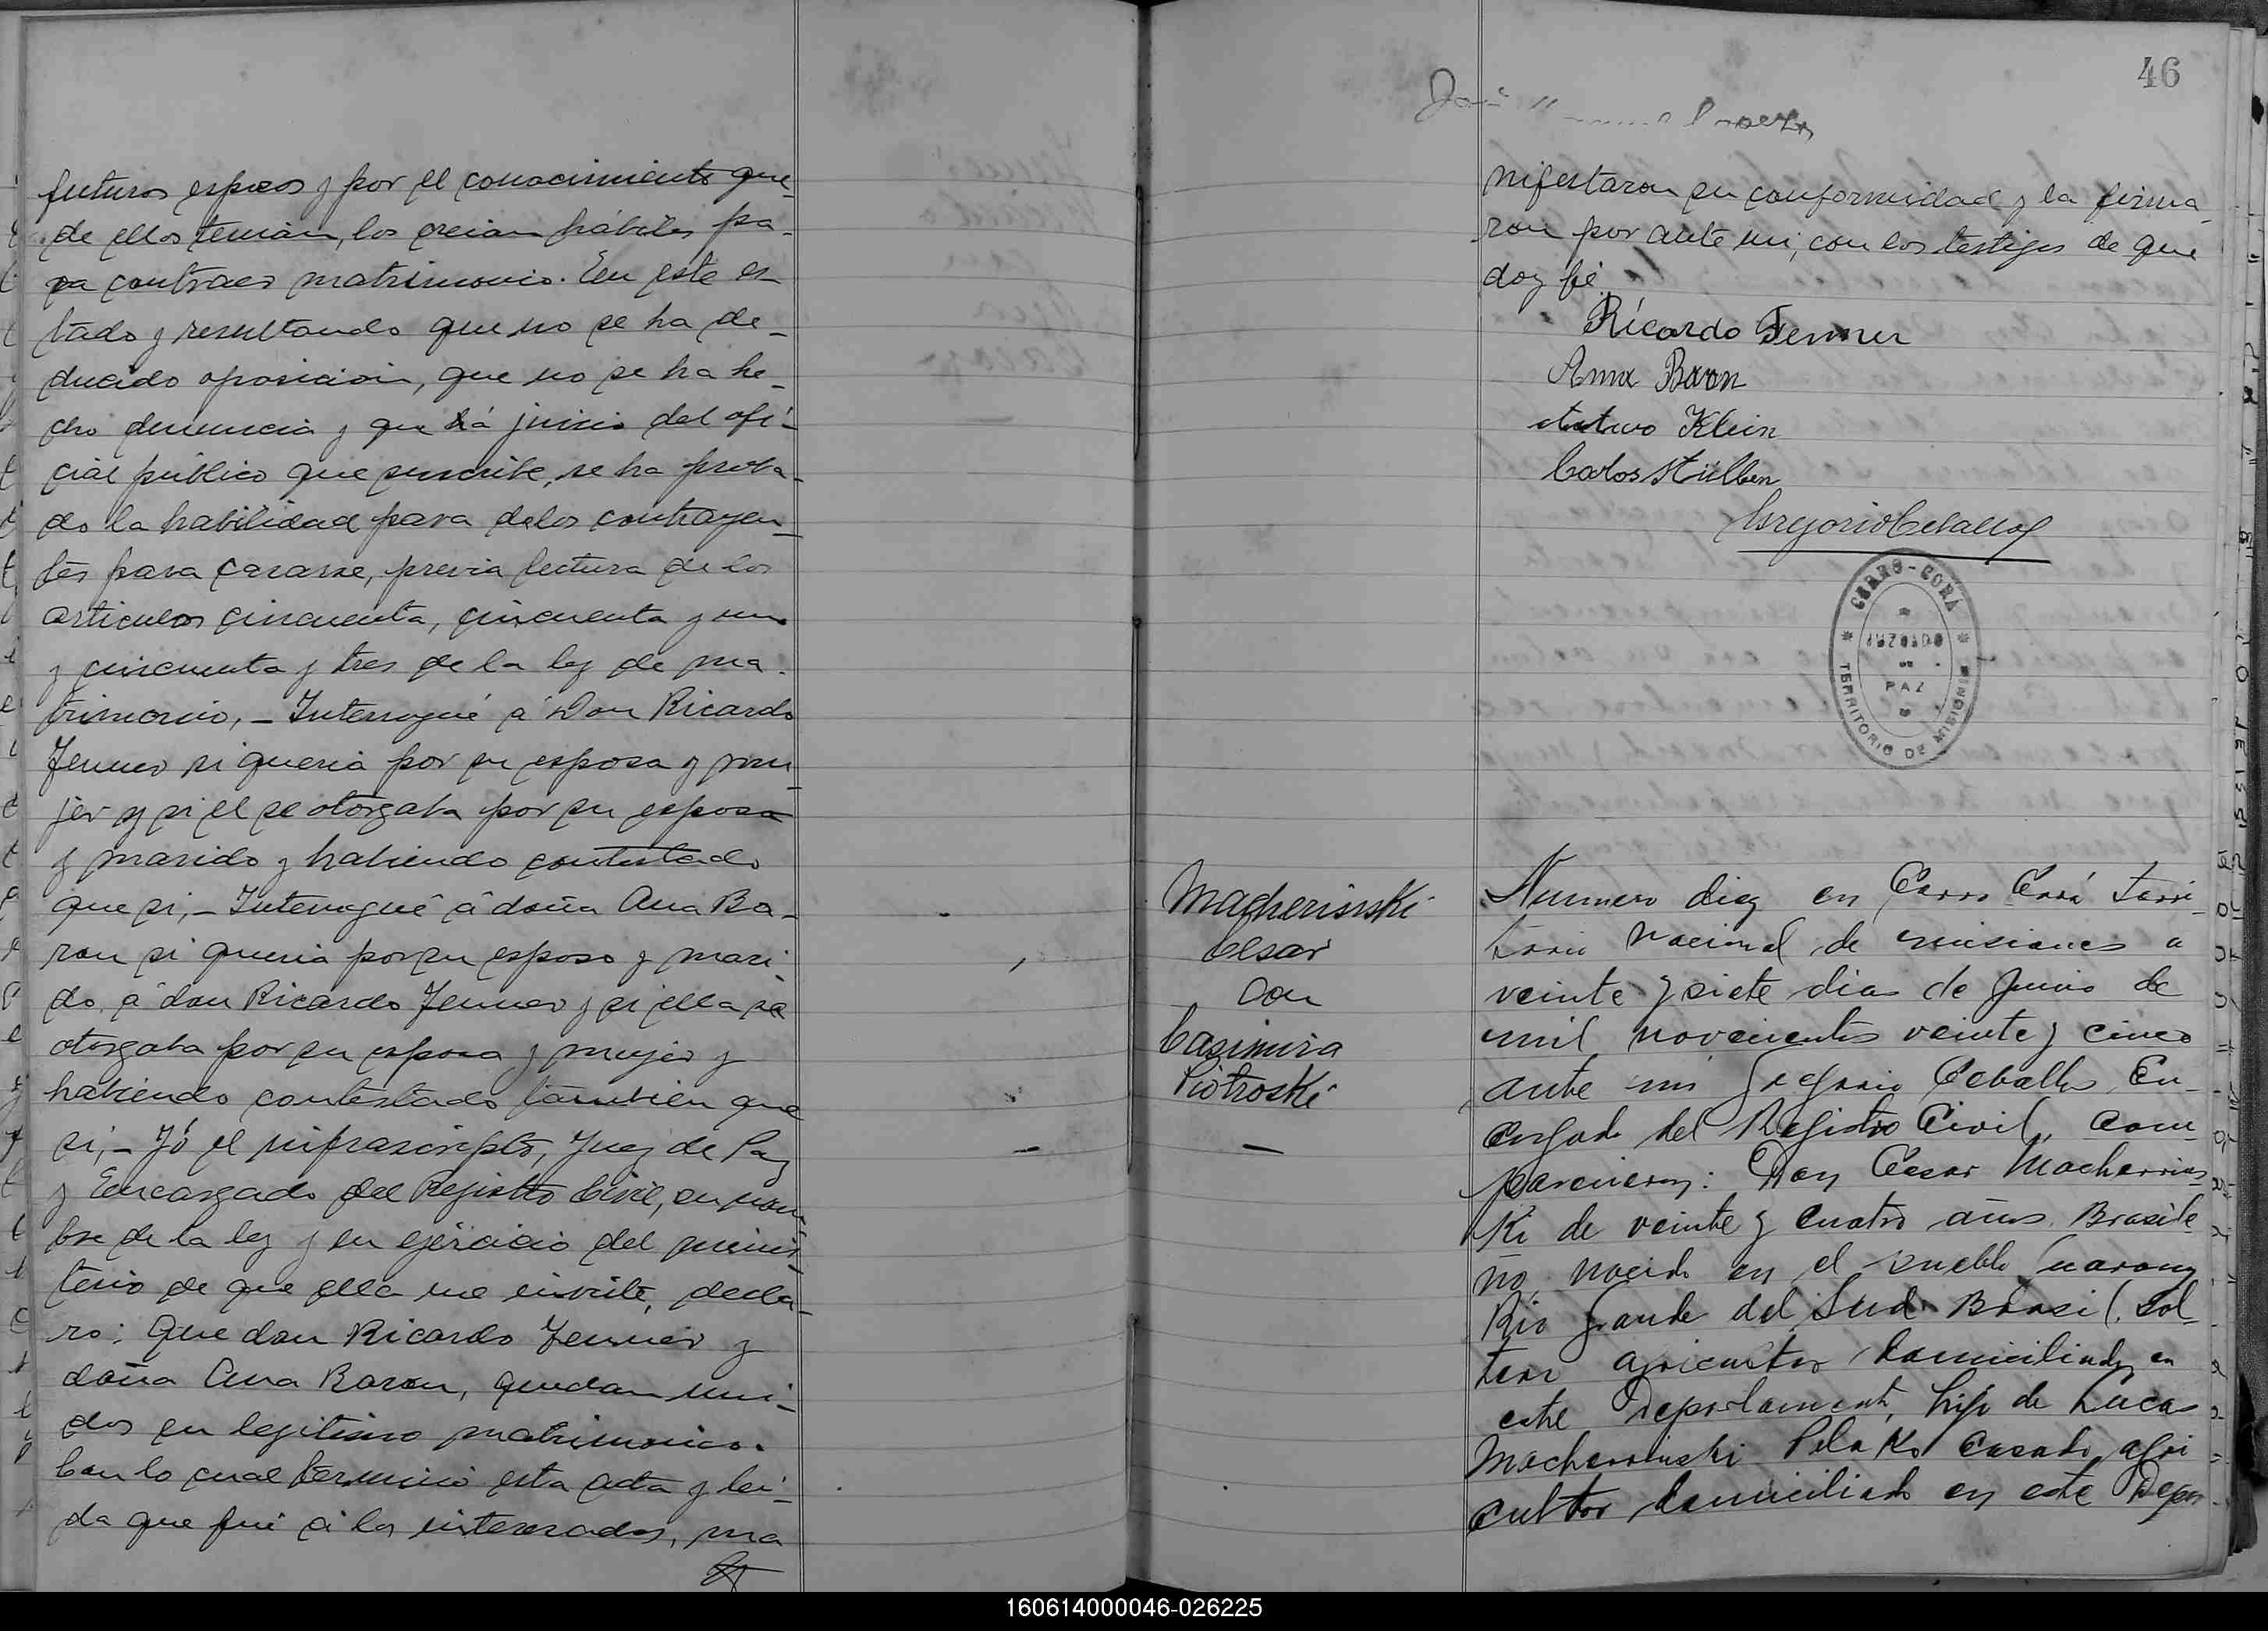 futuros esposos y por el conocimiento que
de ellos tenian, los creian hábiles pa-
ra contraer matrimonio. En este es-
tado y resultando que no se ha de-
ducido oposicion, que no se ha he-
cho denuncia y que á juicio del ofi-
cial público que suscribe, se ha proba-
do la habilidad para de los contrayen-
tes para casarse, previa lectura de los
articulos cincuenta, cincuenta y uno
y cincuenta y tres de la ley de ma-
trimonio, - Interrogué á Don Ricardo
Jenner si queria por su esposa y mu-
jer y si el se otorgaba por su esposo
y marido y habiendo contestado
que si, - Interrogué á doña Ana Ba-
ron si queria por su esposo y mari-
do, á don Ricardo Jenner y si ella se
otorgaba por su esposa y mujer y
habiendo contestado tambien que
si, - Yó el infrascripto, Juez de Paz
y Encargado del Registro Civil, en nom-
bre de la ley y en ejercicio del minis-
terio de que ella me inviste, decla-
ro: Que don Ricardo Jenner y
doña Ana Baron, quedan uni-
dos en legitimo matrimonio.
Con lo cual terminó esta acta y lei-
da que fué á los interesados, ma
46
nifestaron su conformidad y la firma-
ron por ante mi, con los testigos de que
doy fé
Ricardo Jenner
Anna Baron
Klein
Carlos Stülben
Gregorio Ceballos
CERRO-CORÁ
JUZGADO
DE
PAZ
TERRITORIO DE MISIONES
Macherinski
Cesar
Con
Casimira
Piotroski
Numero diez en Cerro Corá Terri-
torio Nacional de misiones a
veinte y siete dias de Junio de
mil novecientos veinte y cinco
ante mi Gregorio Ceballos En-
cargado del Registro Civil, com-
parecieron: Don Cesar Macherins-
ki de veinte y cuatro años Brasile-
ño, nacido en el pueblo Guarany
Rio Grande del Sud Brasil, sol-
tero agricultor domiciliado en
este Departamento, hijo de Lucas
Macherinski Polako casado agri
cultor domiciliado en este Depar
160614000046-026225